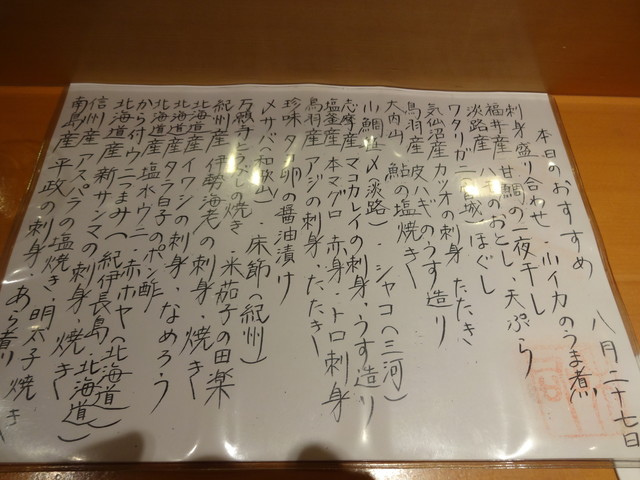 八月二十七日
本日のおすすめ
刺身盛り合わせ・小イカのうま煮
福井産 甘鯛の一夜干し
淡路産 ハモのおとし、天ぷら
ワタリガニ(宮城)ほぐし
気仙沼産 カツオの刺身 たたき
鳥羽産 皮ハギのうす造り
大内山 鮎の塩焼き
小鯛笹〆(淡路)・シャコ(三河)
志摩産 マコカレイの刺身・うす造り
塩釜産 本マグロ 赤身・トロ刺身
鳥羽産 アジの刺身・たたき
珍味 タコ卵の醤油漬け
〆サバ(和歌山)・床節(紀州)
万願寺とうがらしの焼き・米茄子の田楽
紀州産 伊勢海老の刺身・焼き
北海道産 イワシの刺身・なめろう
北海道産 タラ白子のポン酢
から付ウニ・塩水ウニ・赤ホヤ(北海道)
北海道産 ニつまみ(紀伊長島・北海道)
北海道産 新サンマの刺身・焼き
信州産 アスパラの塩焼き・明太子焼き
南島産 平政の刺身・あら煮り